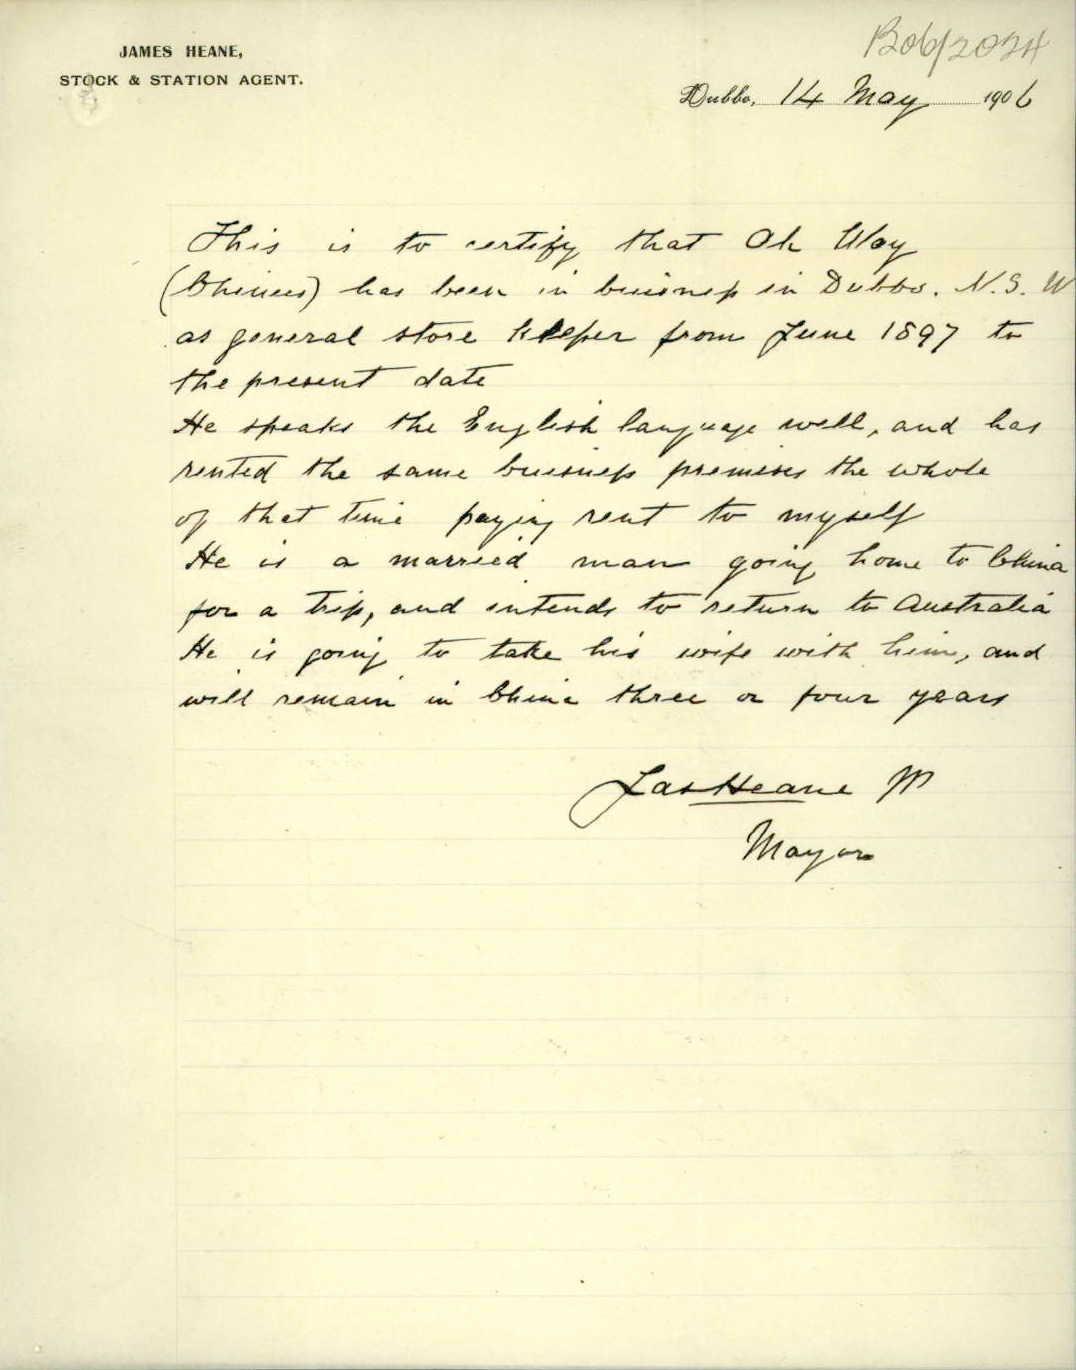 B06/2024
JAMES HEANE,
STOCK & STATION AGENT.
Dubbo, 14 May 1906
This is to certify that Ah Way
(Chinees) has been in buisness in Dubbo. N.S.W
as general store keeper from June 1897 to
the present date
He speaks the English language well, and has
rented the same buisness premises the whole
of that time paying rent to myself
He is a married man going home to China
for a trip, and intends to return to Australia
He is going to take his wife with him, and
will remain in China three or four years
Jas Heane JP
Mayor